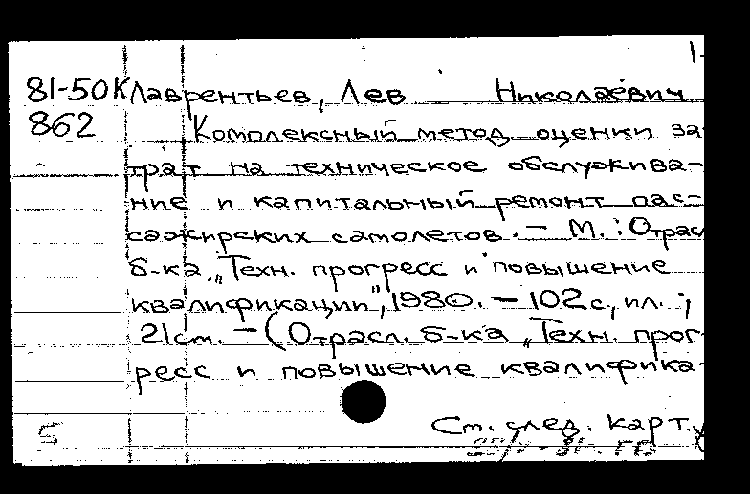 1-
81-50К Лаврентьев, Лев Николаевич
862 Комплексный метод оценки за
трат на техническое обслужива-
ние и капитальный ремонт пас-
сажирских самолетов. - М.: Отрасл
б-ка „Техн. прогресс и повышение
квалификации", 1980. - 102 с., ил. ;
21 см. - (Отрасл. б-ка „Техн. прог-
ресс и повышение квалифика-
Ст. след. карт.
5